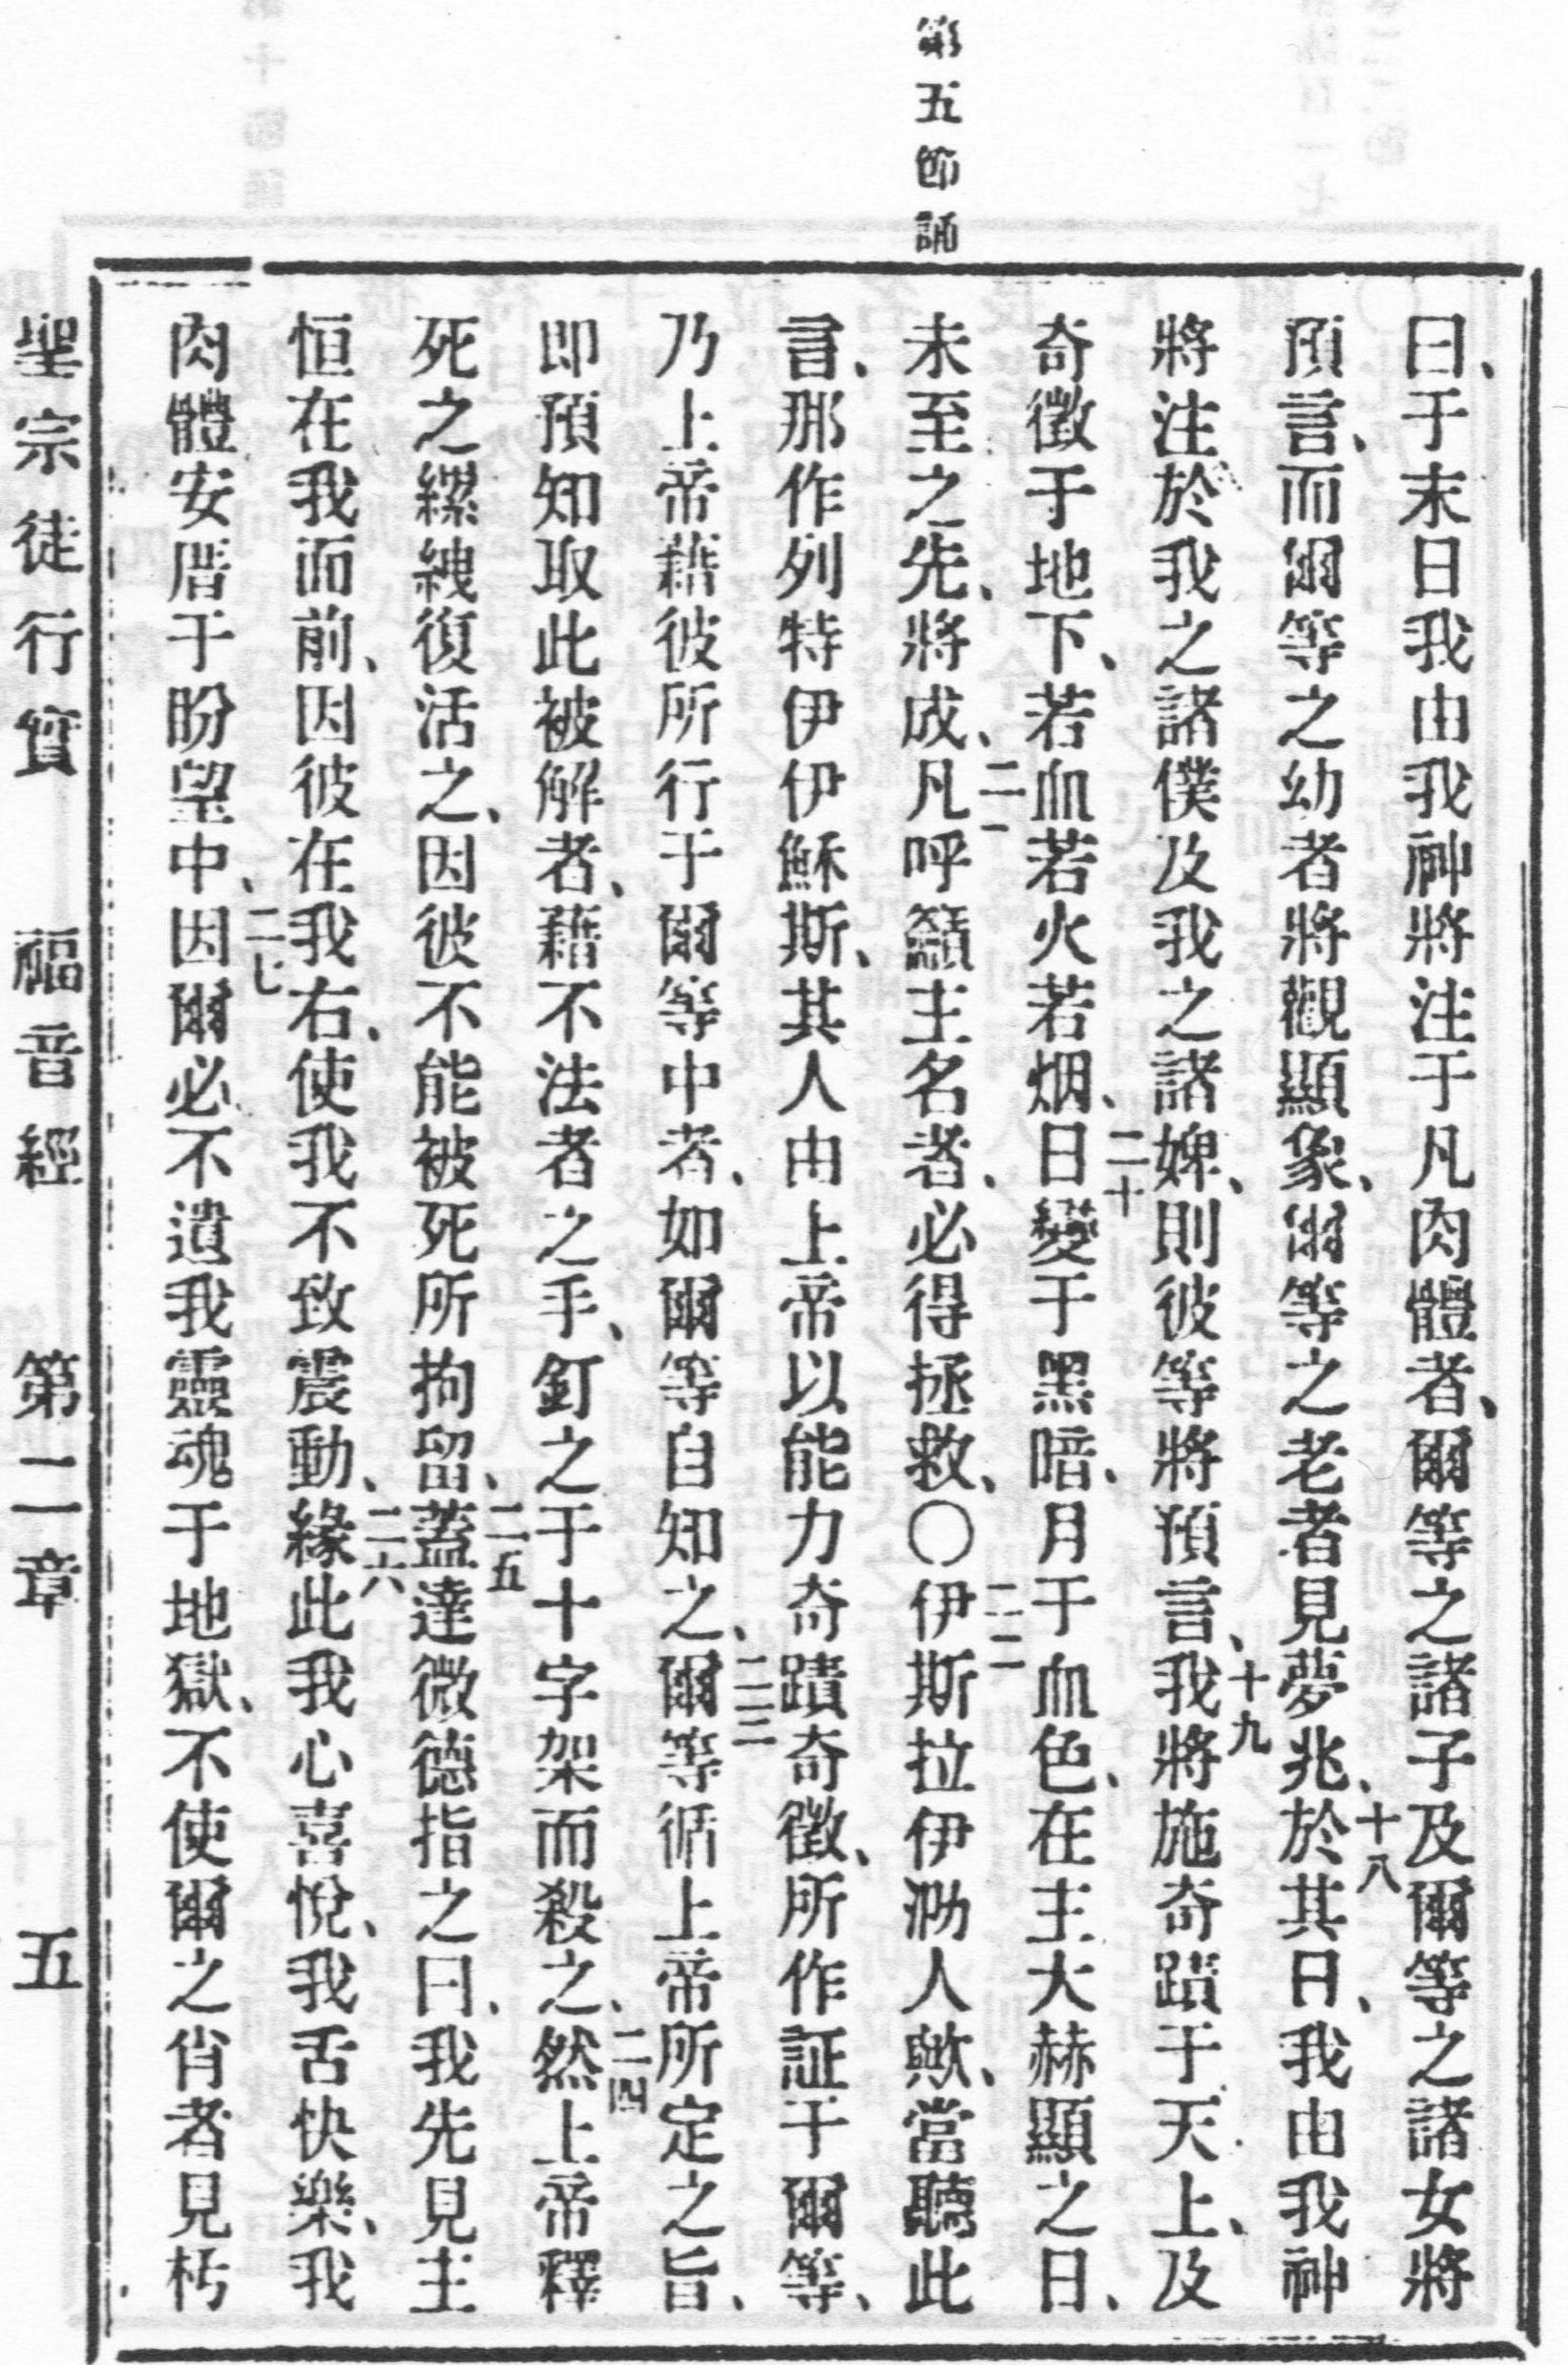 第五節誦
曰、于末日我由我神將注于凡肉體者、爾等之諸子及爾等之諸女將
預言、而爾等之幼者將觀顯象、爾等之老者見夢兆、十八於其日、我由我神
將注於我之諸僕及我之諸婢、則彼等將預言、十九我將施奇蹟于天上、及
奇徵于地下、若血若火若烟、二十日變于黑暗、月于血色、在主大赫顯之日、
未至之先、將成、二一凡呼籲主名者、必得拯救、〇二二伊斯拉伊泐人歟、當聽此
言、那作列特伊伊穌斯、其人由上帝以能力奇蹟奇徵、所作証于爾等、
乃上帝藉彼所行于爾等中者、如爾等自知之、二三爾等循上帝所定之旨、
即預知取此被解者、藉不法者之手、釘之于十字架而殺之、二四然上帝釋
死之縲絏復活之、因彼不能被死所拘留、二五蓋達微德指之曰、我先見主
恒在我面前、因彼在我右、使我不致震動、二六緣此我心喜悅、我舌快樂、我
肉體安厝于盼望中、二七因爾必不遺我靈魂于地獄、不使爾之肖者見朽
聖宗徒行實　福音經　第二章　五